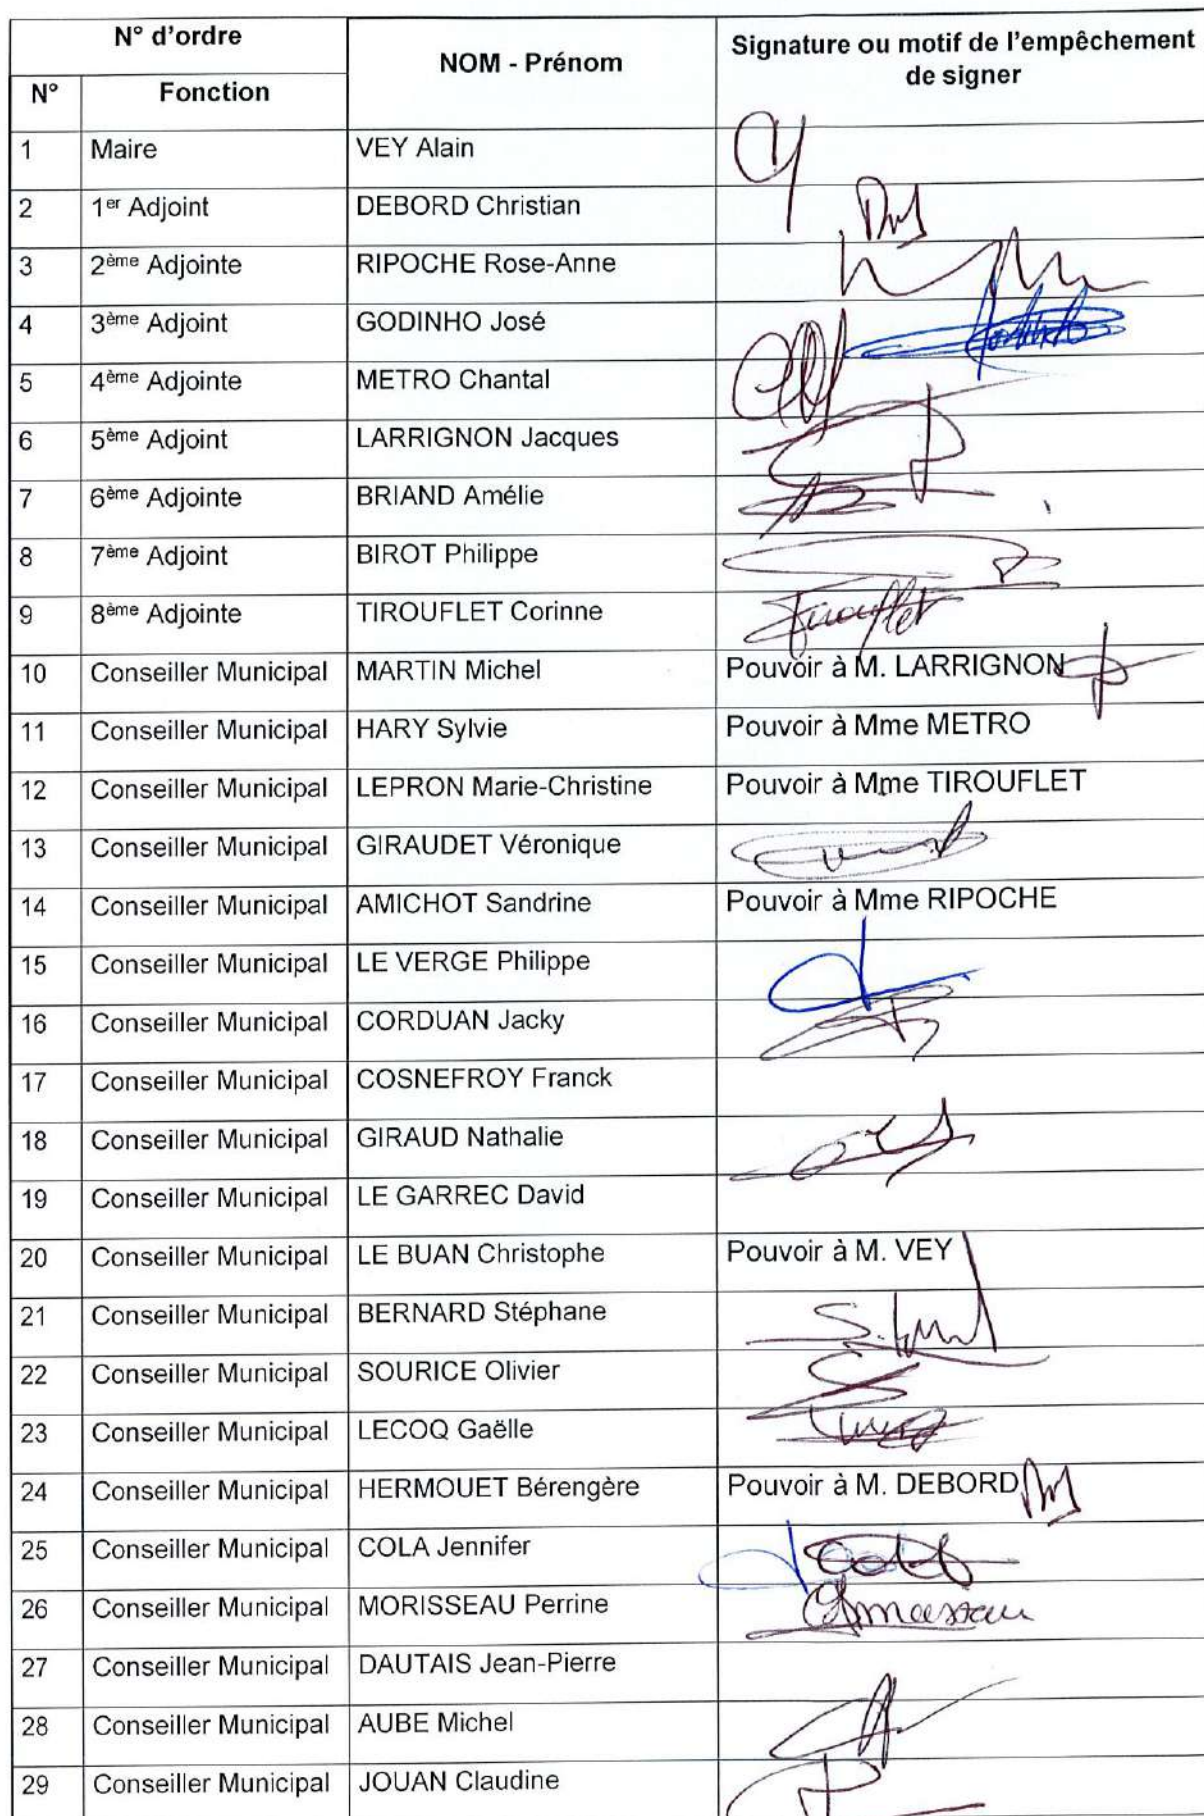 N° d'ordre
NOM - Prénom
Signature ou motif de l'empêchement
de signer
N° Fonction
1 Maire VEY Alain
2 1er Adjoint DEBORD Christian
3 2ème Adjointe RIPOCHE Rose-Anne
4 3ème Adjoint GODINHO José
5 4ème Adjointe METRO Chantal
6 5ème Adjoint LARRIGNON Jacques
7 6ème Adjointe BRIAND Amélie
8 7ème Adjoint BIROT Philippe
9 8ème Adjointe TIROUFLET Corinne Tirouflet
10 Conseiller Municipal MARTIN Michel Pouvoir à M. LARRIGNON
11 Conseiller Municipal HARY Sylvie Pouvoir à Mme METRO
12 Conseiller Municipal LEPRON Marie-Christine Pouvoir à Mme TIROUFLET
13 Conseiller Municipal GIRAUDET Véronique
14 Conseiller Municipal AMICHOT Sandrine Pouvoir à Mme RIPOCHE
15 Conseiller Municipal LE VERGE Philippe
16 Conseiller Municipal CORDUAN Jacky
17 Conseiller Municipal COSNEFROY Franck
18 Conseiller Municipal GIRAUD Nathalie
19 Conseiller Municipal LE GARREC David
20 Conseiller Municipal LE BUAN Christophe Pouvoir à M. VEY
21 Conseiller Municipal BERNARD Stéphane
22 Conseiller Municipal SOURICE Olivier
23 Conseiller Municipal LECOQ Gaëlle
24 Conseiller Municipal HERMOUET Bérengère Pouvoir à M. DEBORD
25 Conseiller Municipal COLA Jennifer
26 Conseiller Municipal MORISSEAU Perrine
27 Conseiller Municipal DAUTAIS Jean-Pierre
28 Conseiller Municipal AUBE Michel
29 Conseiller Municipal JOUAN Claudine